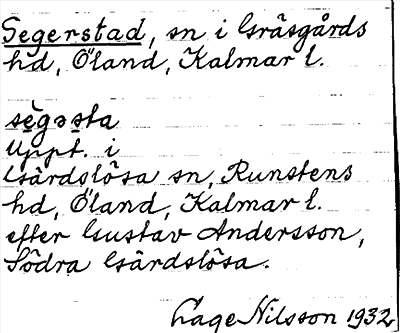 Segerstad, sn i Gräsgårds
hd, Öland, Kalmar l.
sègəsta
Uppt. i
Gärdslösa sn, Runstens
hd, Öland, Kalmar l.
efter Gustav Andersson,
Södra Gärdslösa.
Lage Nilsson 1932